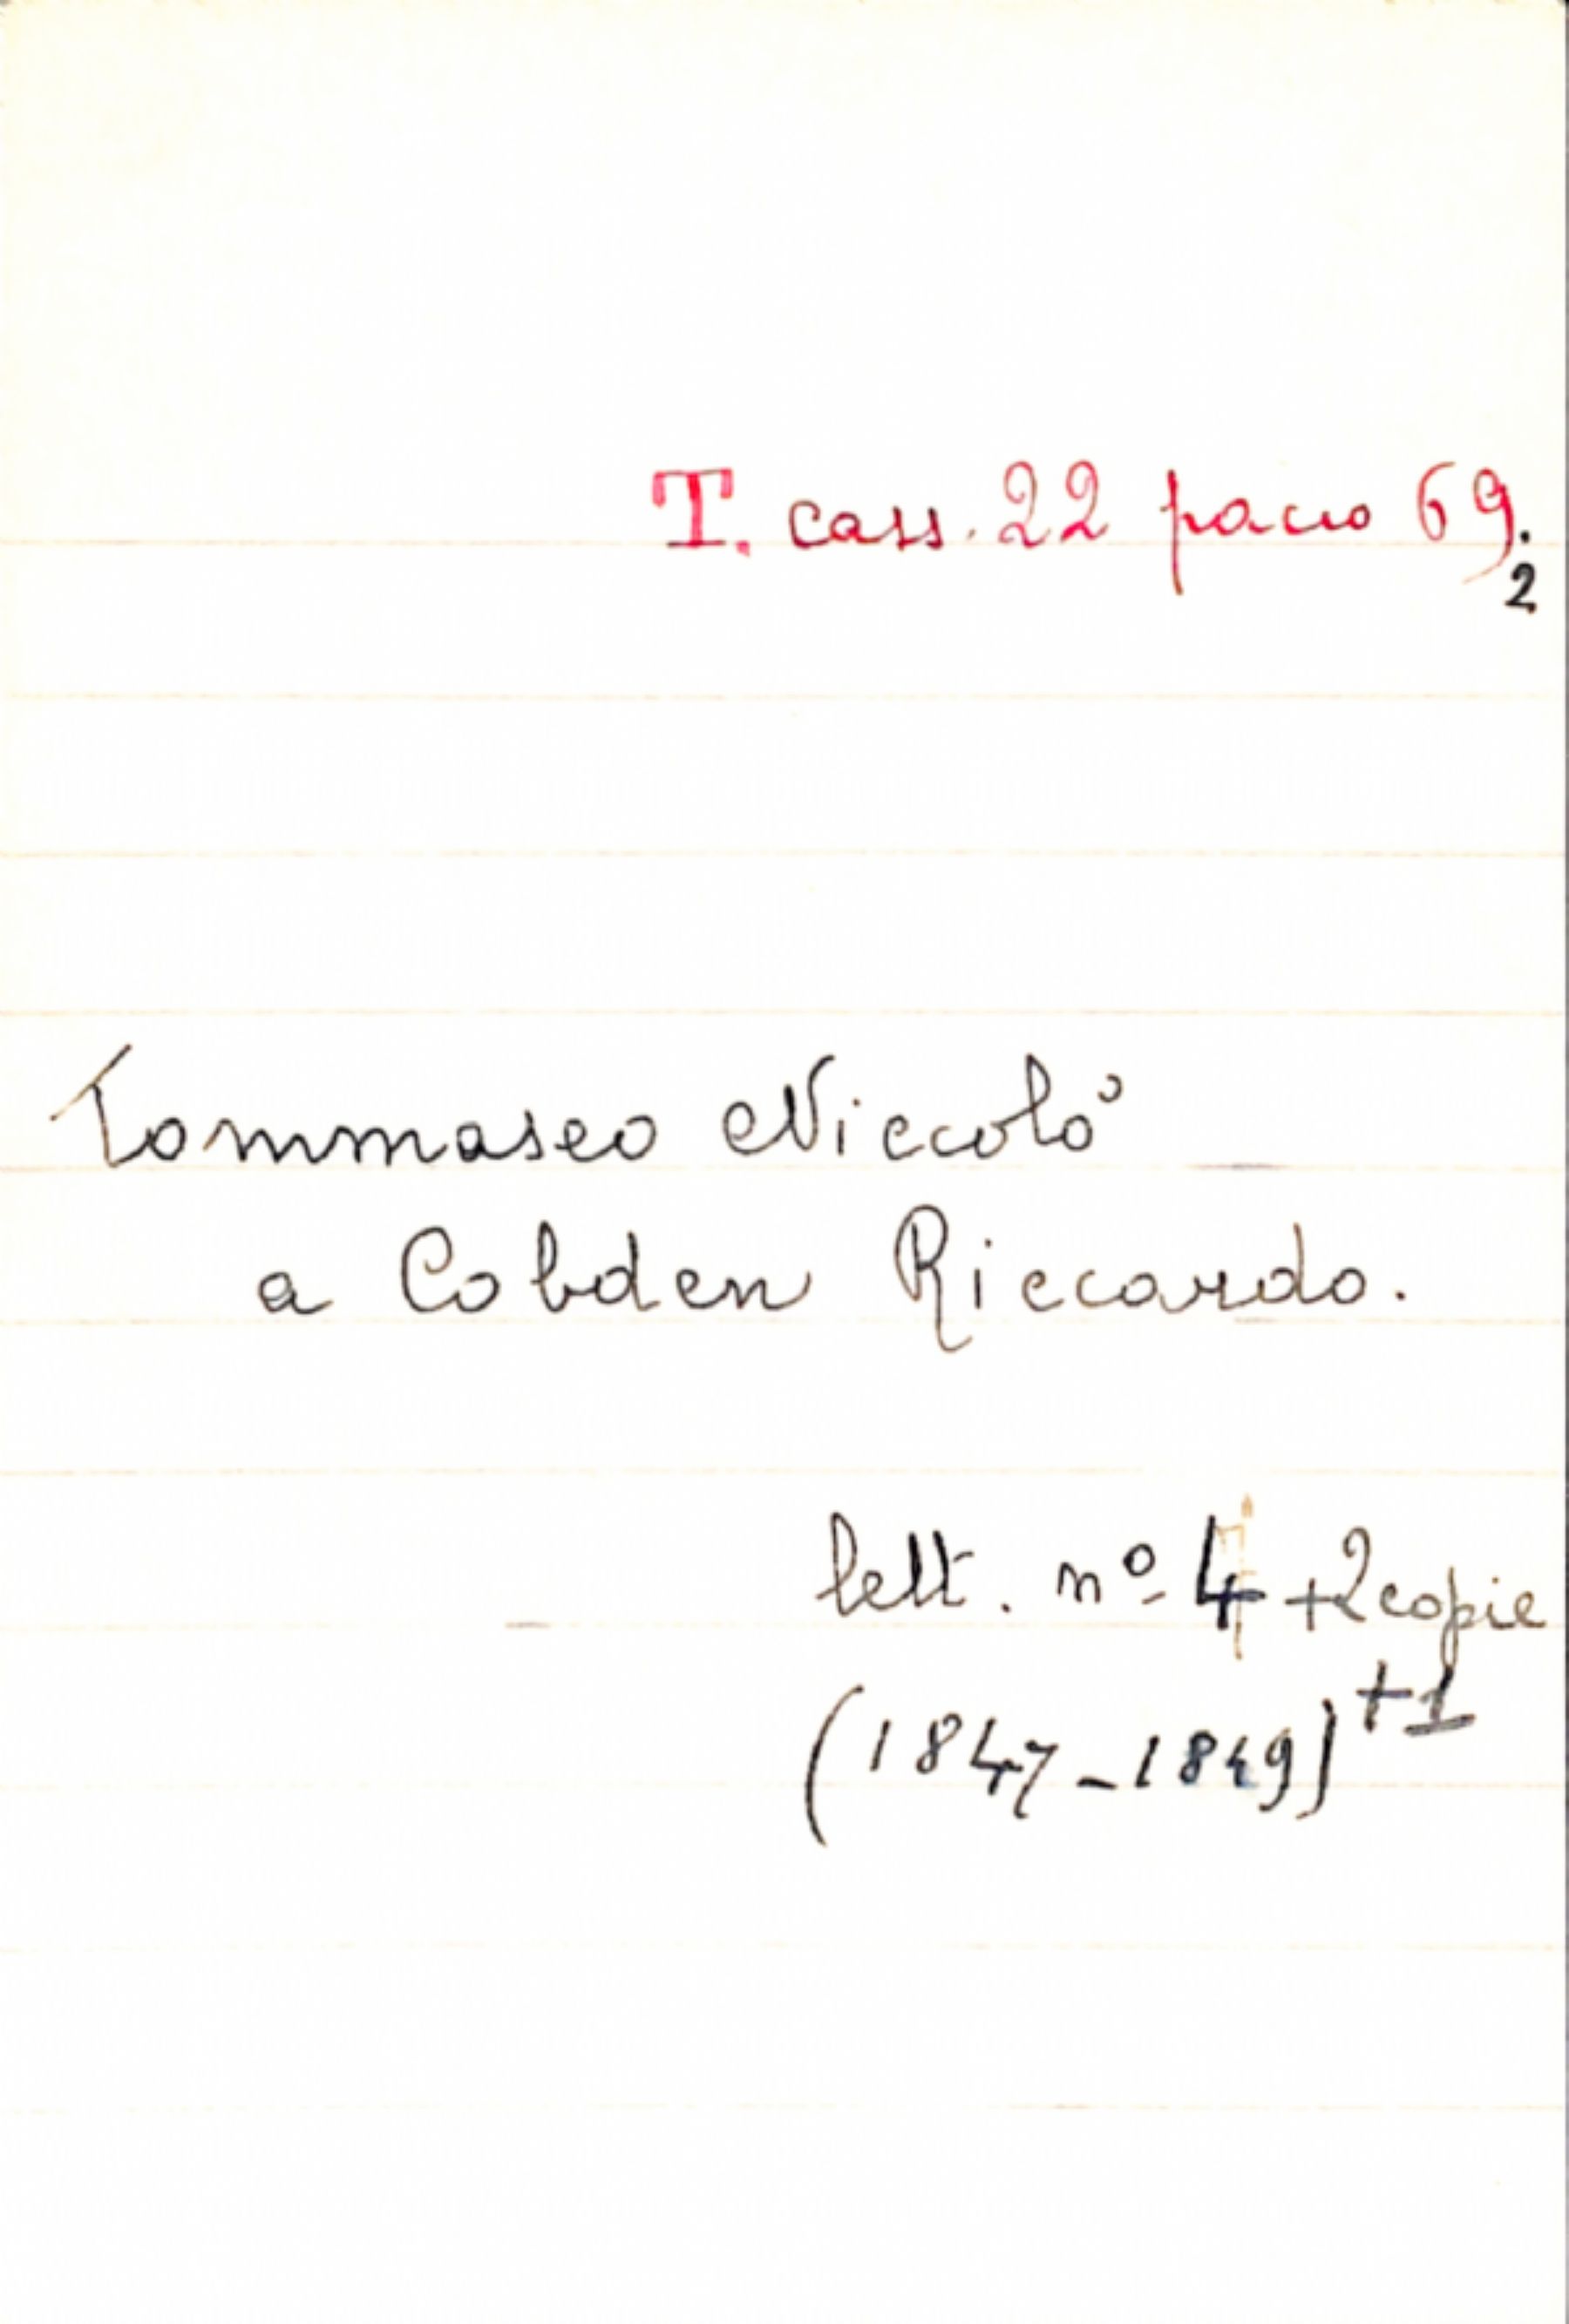 T. cass. 22 pacco 69.
2
Tommaseo Niccolò
a Cobden Riccardo.
lett. nº 4 + 2 copie
+1
(1847-1849)